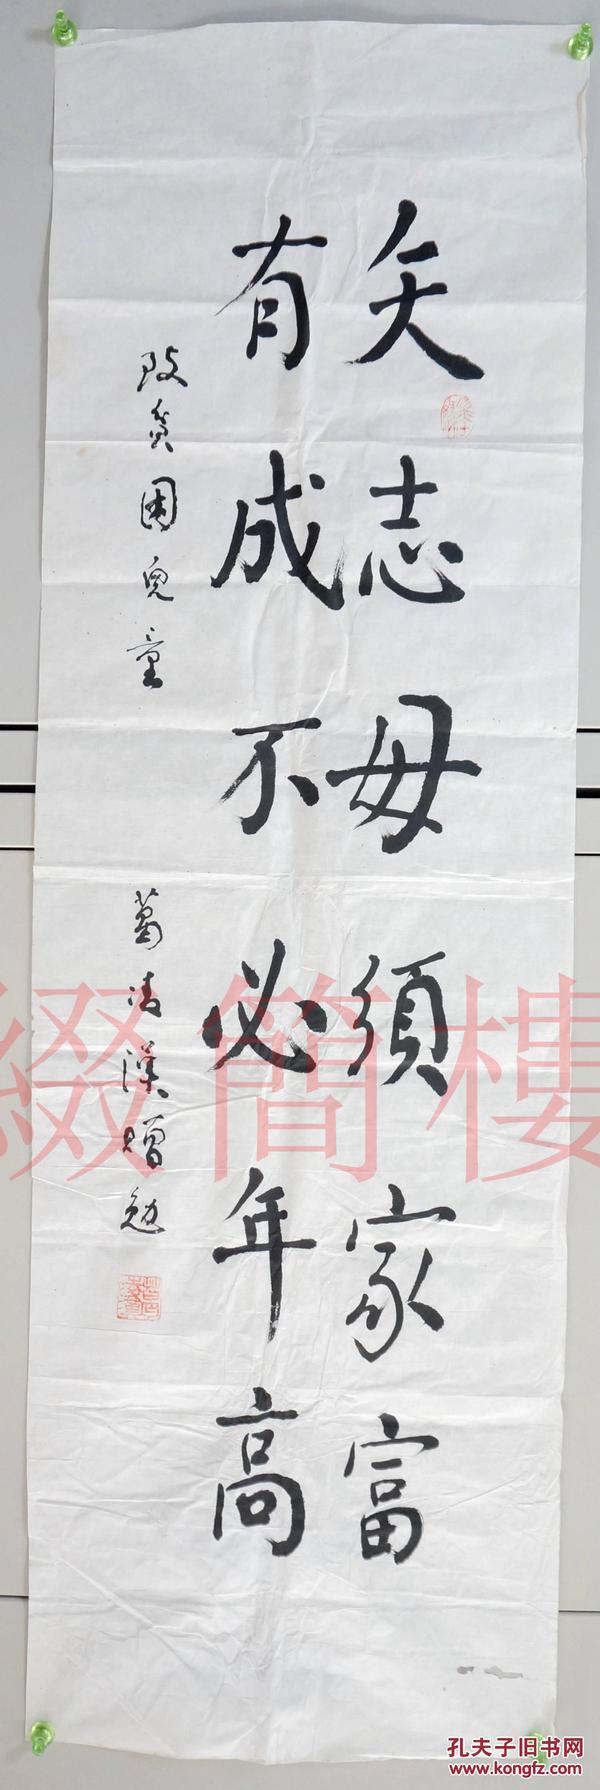 矢志毋須家富
有成不必年高
致贫困兒童
葛清漢贈勉
綴簡樓
孔夫子旧书网
www.kongfz.com